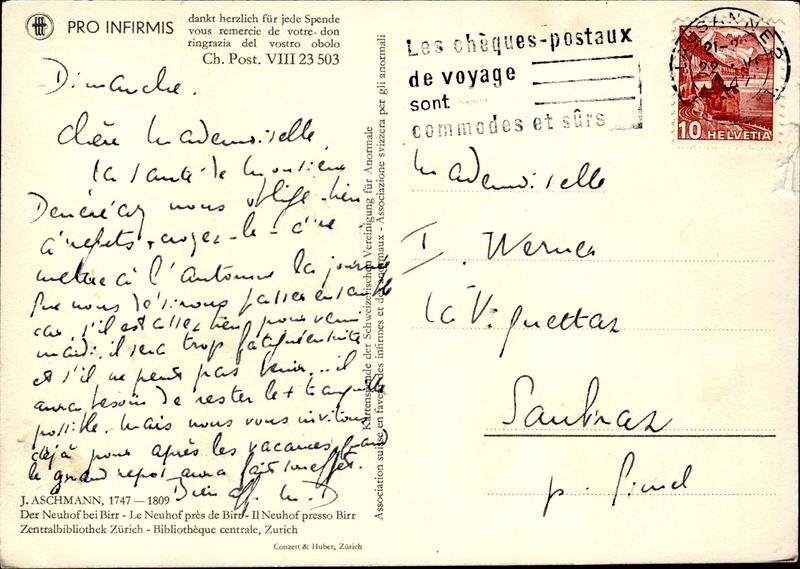 PRO INFIRMIS
dankt herzlich für jede Spende
vous remercie de votre don
ringrazia del vostro obolo
Ch. Post. VIII 23 503
Dimanche.
Chère Mademoiselle,
la santé de Monsieur
Denéréaz nous oblige bien
à regrets, croyez-le - à re
mettre à l'automne la journée
que nous désirions passer ensemble
car s'il est assez bien pour venir
mardi il sera trop fatigué ensuite
et s'il ne peut pas venir... il
aura besoin de rester le + tranquille
possible. Mais nous vous invitons
déjà pour après les vacances, quand
le grand repos aura fait son effet.
Bien aff. M. D
J. ASCHMANN, 1747—1809
Der Neuhof bei Birr - Le Neuhof près de Birr - Il Neuhof presso Birr
Zentralbibliothek Zürich - Bibliothèque centrale, Zurich
Conzett & Huber, Zürich
Kartenspende der Schweizerischen Vereinigung für Anormale
Association suisse en faveur des infirmes et des anormaux - Associazione svizzera per gli anormali
Les chèques-postaux
de voyage
sont
commodes et sûrs
LAUSANNE
10 HELVETIA
Mademoiselle
I. Werner
La Viguettaz
Saubraz
p. Gimel